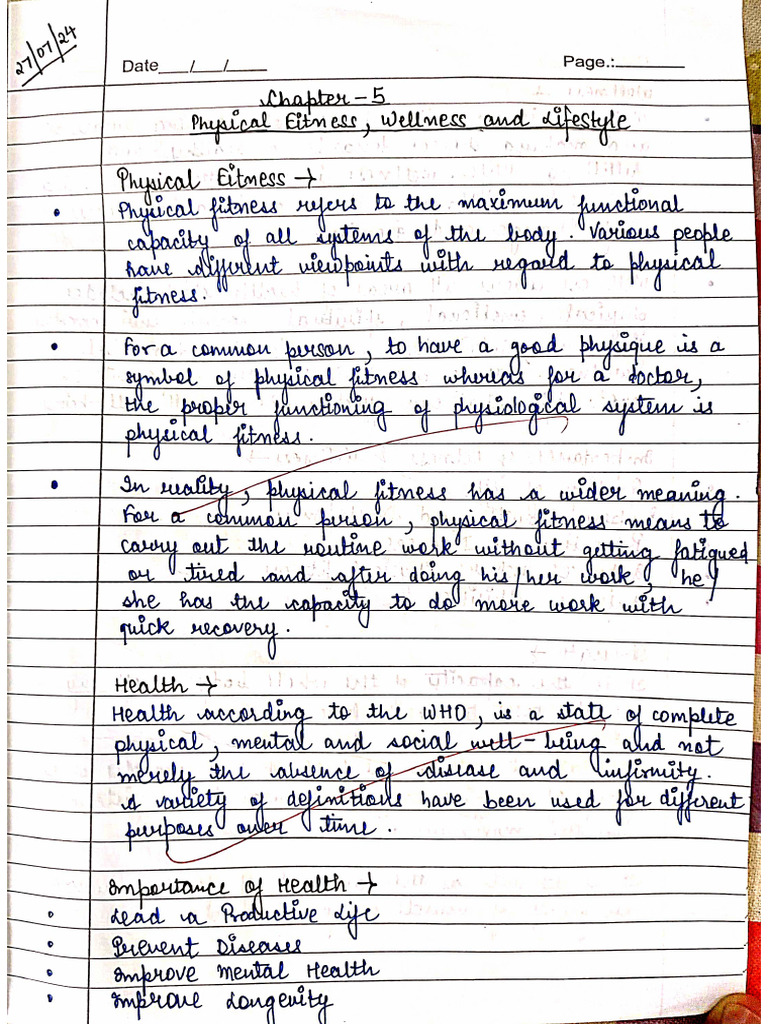 27/07/24
Date___/___/____ Page.:________
Chapter - 5
Physical Fitness, Wellness and Lifestyle
Physical Fitness →
• Physical fitness refers to the maximum functional
capacity of all systems of the body. Various people
have different viewpoints with regard to physical
fitness.
• For a common person, to have a good physique is a
symbol of physical fitness whereas for a doctor,
the proper functioning of physiological system is
physical fitness.
• In reality, physical fitness has a wider meaning.
For a common person, physical fitness means to
carry out the routine work without getting fatigued
or tired and after doing his/her work, he/
she has the capacity to do more work with
quick recovery.
Health →
Health according to the WHO, is a state of complete
physical, mental and social well-being and not
merely the absence of disease and infirmity.
A variety of definitions have been used for different
purposes over time.
Importance of Health →
• Lead a Productive Life
• Prevent Diseases
• Improve Mental Health
• Improve Longevity